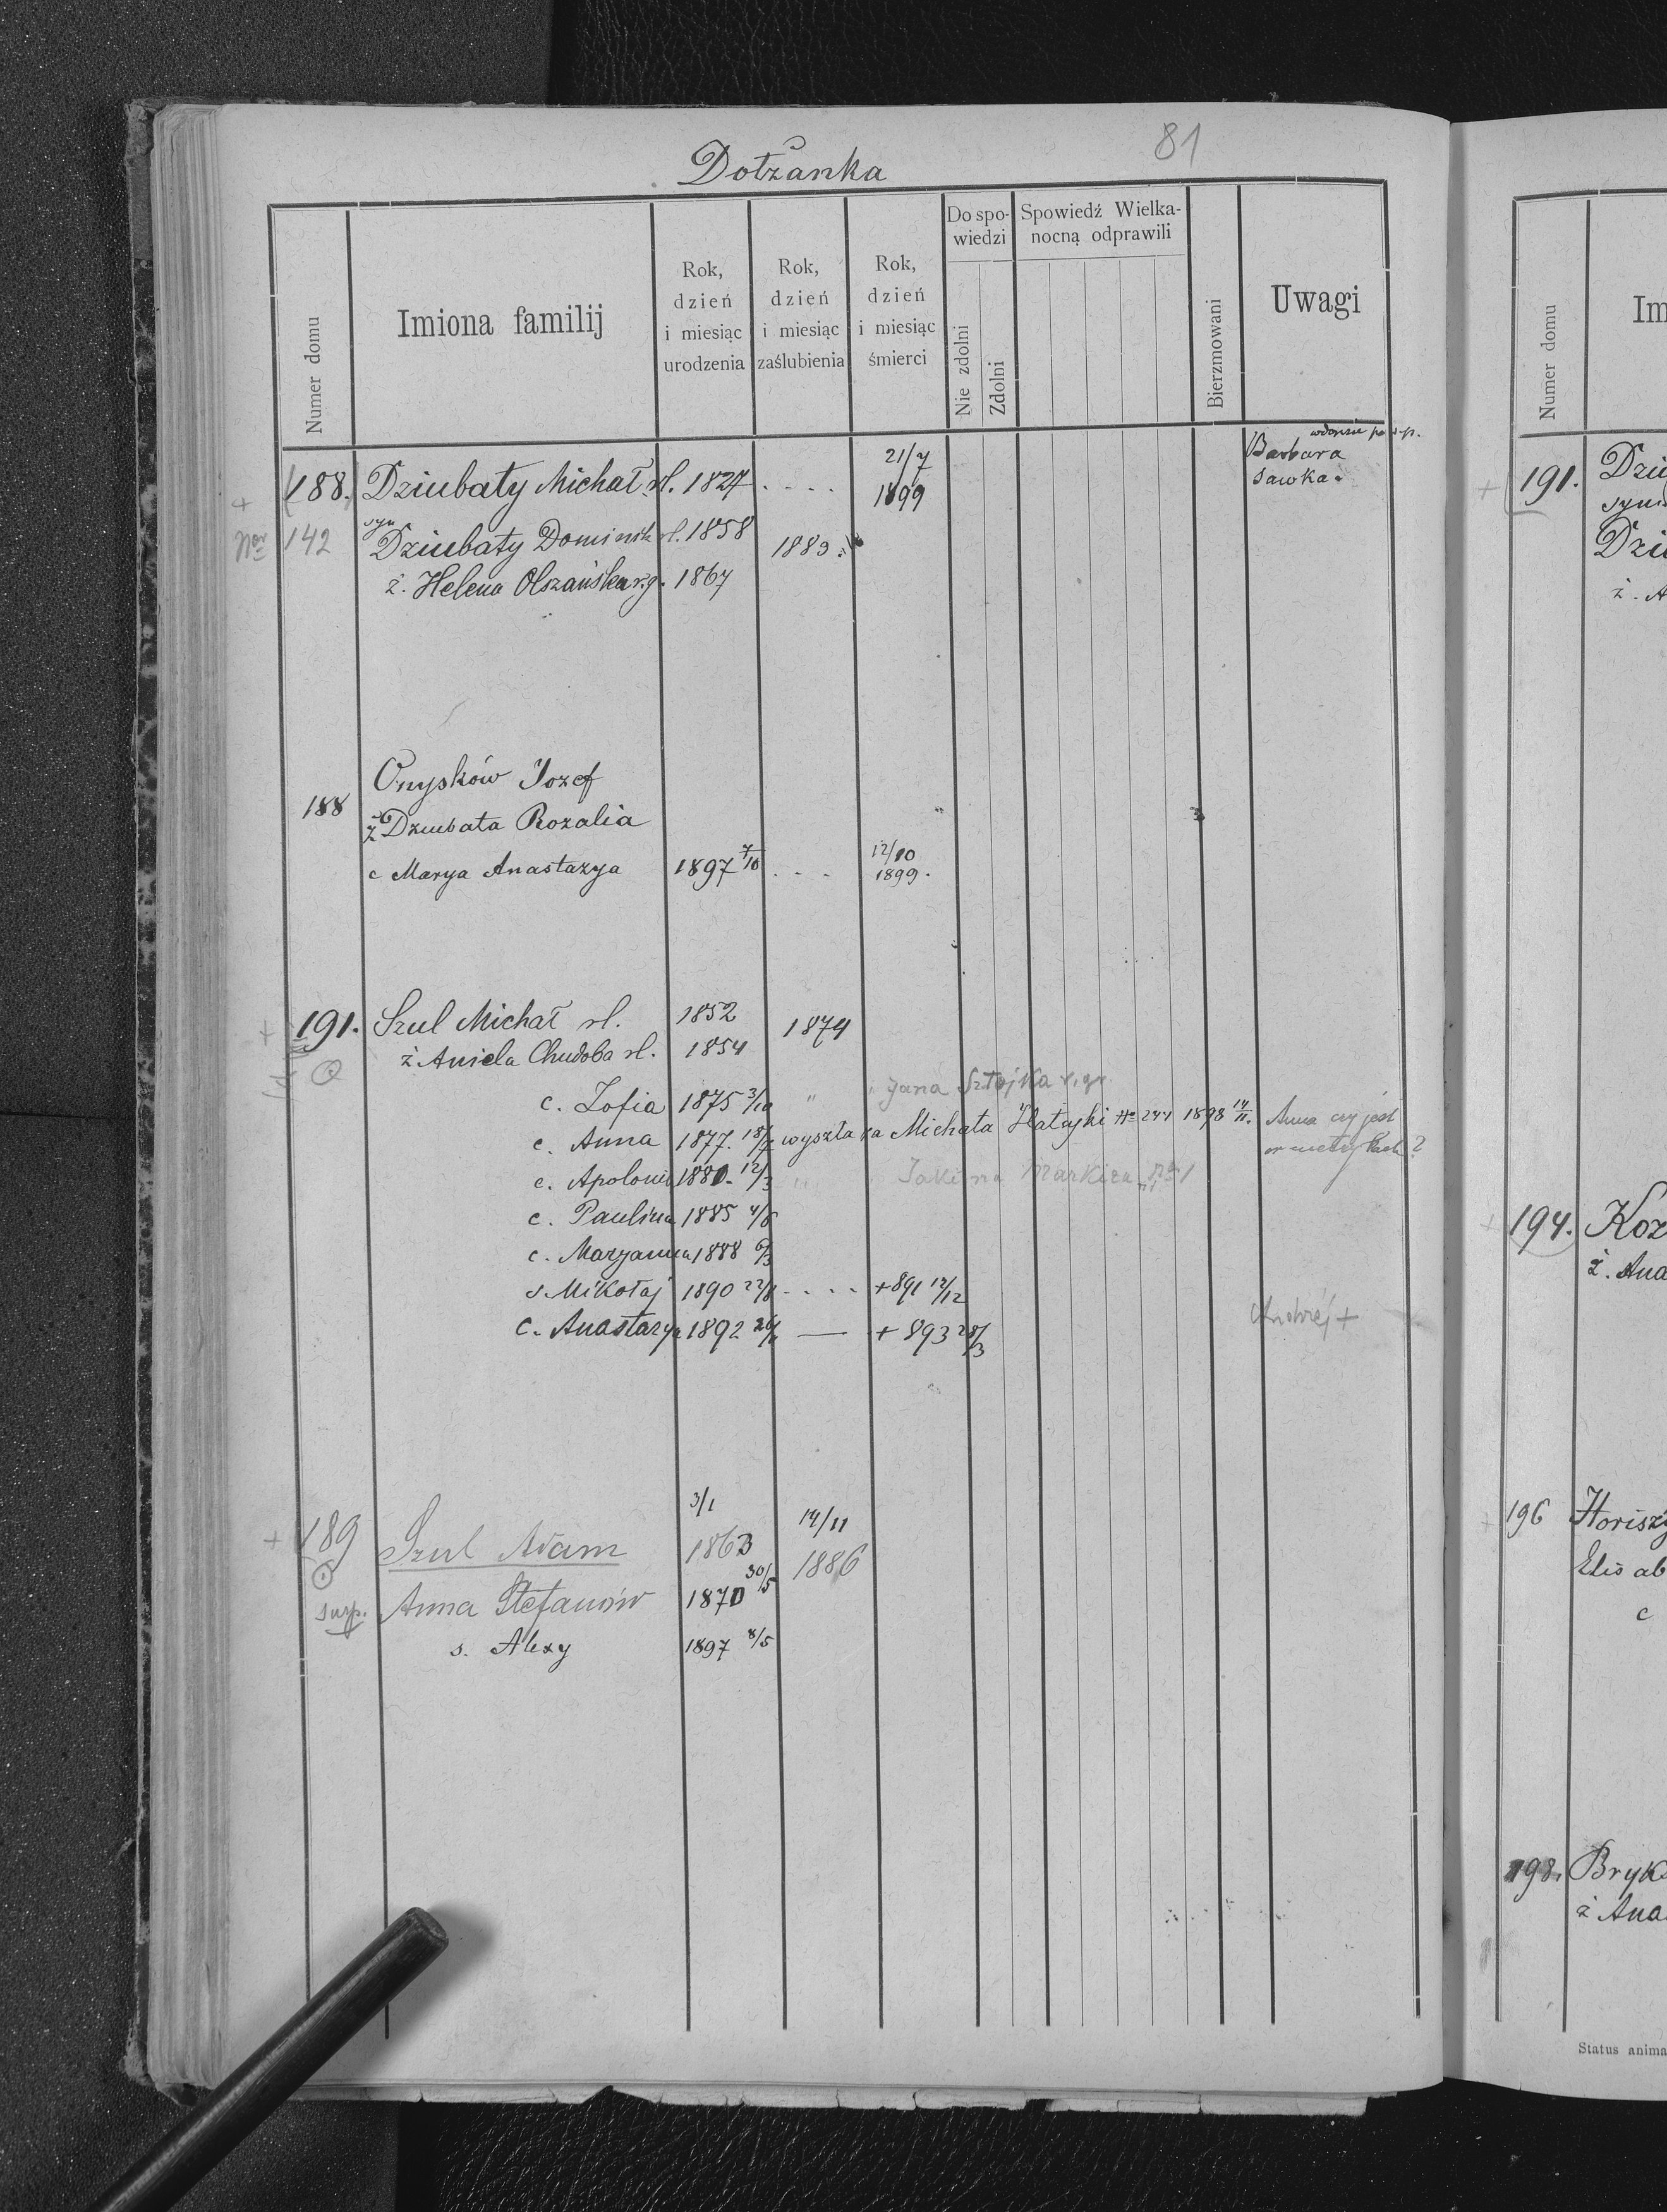 81
Dołżanka
Numer domu
Imiona familij
Rok, dzień i miesiąc urodzenia
Rok, dzień i miesiąc zaślubienia
Rok, dzień i miesiąc śmierci
Do spowiedzi
Nie zdolni
Zdolni
Spowiedź Wielkanocną odprawili
Bierzmowani
Uwagi
+ 188. Dziubaty Michał rł. 1827 . . . . 21/7 1899 Barbara Sawka
142 syn Dziubaty Dominik rł. 1858 1889
ż. Helena Olszańska r.g. 1867
188 Onysków Jozef
ż Dziubata Rozalia
c Marya Anastazya 1897 7/10 . . . 12/10 1899.
+ 191. Szul Michał rł. 1852 1874
ż Aniela Chudoba rł. 1854
c. Zofia 1875 3/10 " Jana Sztojka
c. Anna 1877. 18/7 wyszła za Michała Hałajki No 244 1898 14/11. Anna czy jest
c. Apolonia 1880. 12/3
c. Paulina 1885 4/8
c. Maryanna 1888 6/3
s. Mikołaj 1890 22/8 . . . . +891 12/12
c. Anastazya 1892 — + 893 28/3
Andrzéj +
+ 189 Szul Adam 3/1 1863 14/11 1886
Anna Stefanów 1870 30/5
s. Alexy 1897 8/5
Numer domu
Im
+ 191. Dziu
syn
Dziu
ż. A
+ 194. Koz
ż. Ana
+ 196 Horiszy
Elis ab
c
198. Bryk
ż Ana
Status anima